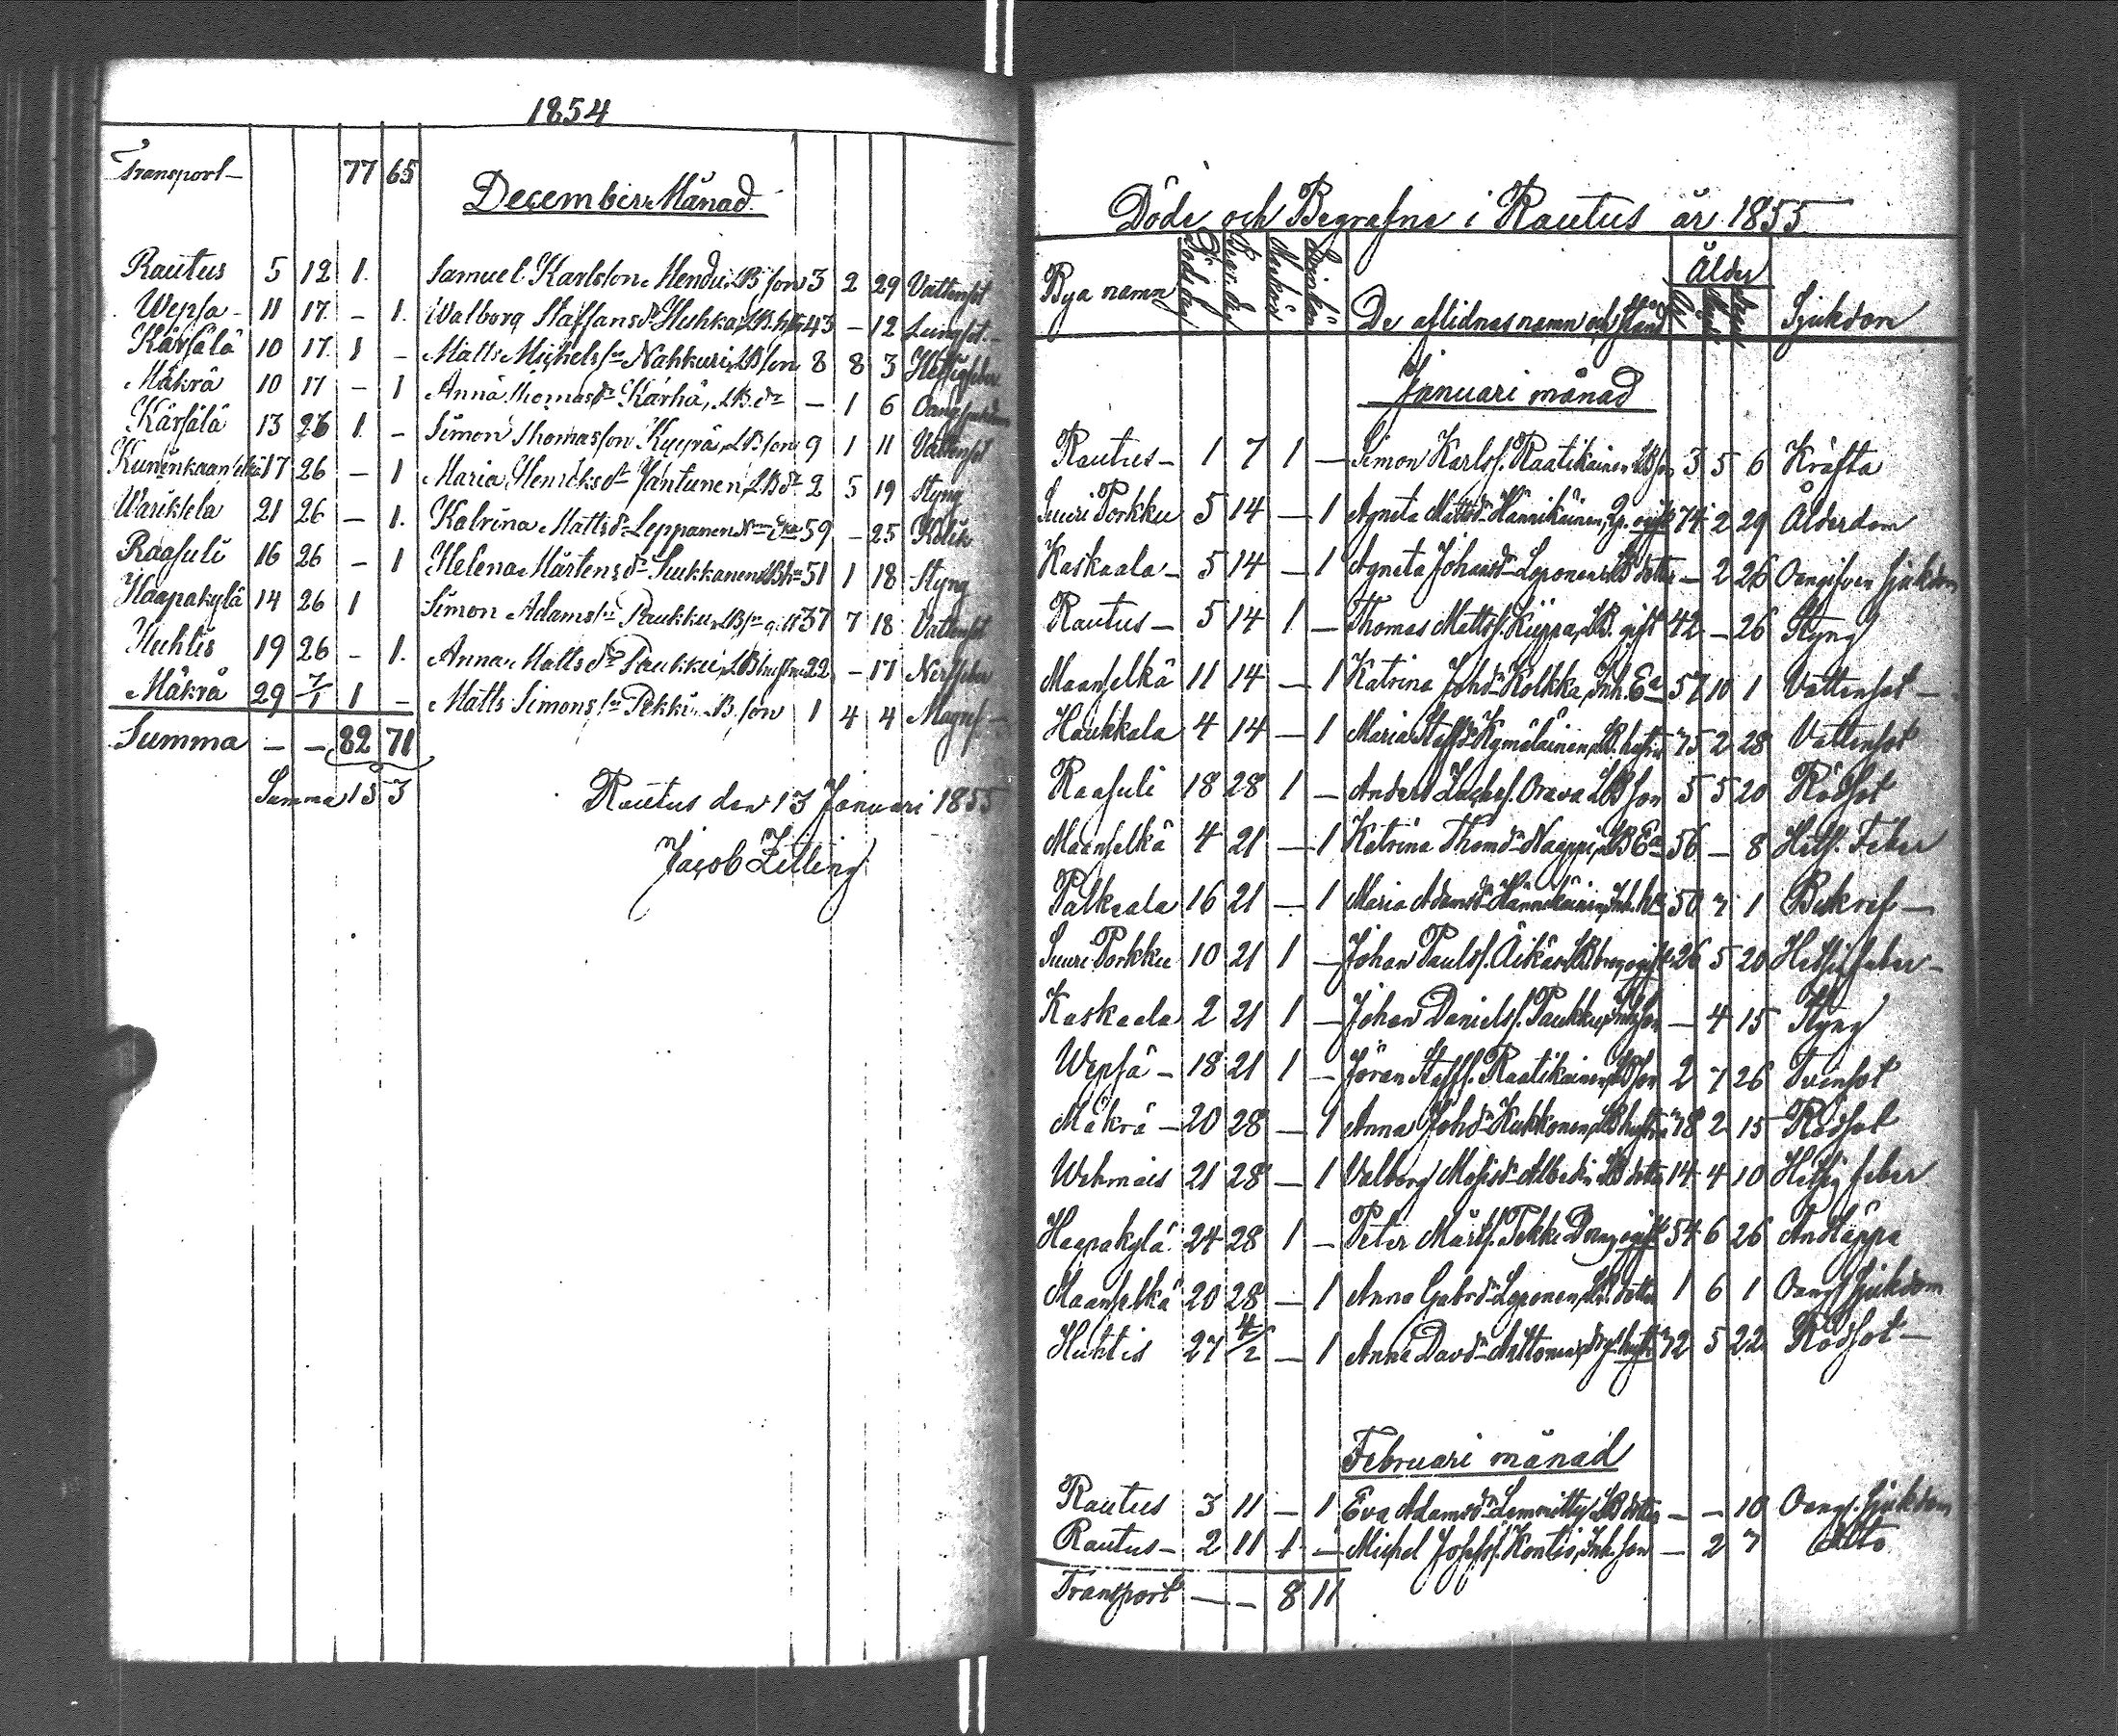 1854
Transport 77 65
December Månad
Rautus 5 12 1. Samuel Karlsson Mendu LB son 3 2 29 Vattensot
Wepsa 11 17 - 1. Walborg Staffansdr Huhka LB. 43 - 12 Lungsot
Kärsälä 10 17 1 - Matts Michelsson Nahkuri LB son 8 8 3 Hettigfeber
Mäkrä 10 17 - 1 Anna Thomasdr Karhu, LB. dr - 1 6 
Kärsälä 13 26 1 - Simon Thomasson Kyyrä, LB son 9 1 11 Vattensot
17 26 - 1 Maria Henriksdr Jantunen, LB dr 2 5 19 Styng
21 26 - 1. Katrina Mattsdr Leppänen 59 - 25 Kolik
Raasuli 16 26 - 1 Helena Mårtensdr Suikkanen 51 1 18 Styng
Haapakylä 14 26 1 Simon Adamsson Paukku, LB 37 7 18 Vattensot
Huhtis 19 26 - 1. Anna Mattsdr Paukku, LB hustru 22 - 17 Nervfeber
Mäkrä 29 7/1 1 - Matts Simonsson Pekki LB. son 1 4 4 Magref
Summa - - 82 71
Summa 153
Rautus den 13 Januari 1855
Jacob Zitting
Döde och Begrafne i Rautus år 1855
Bya namn De aflidnas namn och stånd Ålder Sjukdom
Januari månad
Rautus - 1 7 1 - Simon Karlss. Raatikainen LB son 3 5 6 Kräfta
Suuri Porkku 5 14 - 1 Agneta Mattsdr Hännikäinen, 74 2 29 Ålderdom
Kaskaala - 5 14 - 1 Agneta Johansdr Loponen LB dotter - 2 26 Oangifven sjukdom
Rautus - 5 14 1 - Thomas Mattss. Kiuppa, LB. gift 42 - 26 Styng
Maanselkä 11 14 - 1 Katrina Johdr Kolkka, Inh. Ea 57 10 1 Vattensot -
Haukkala 4 14 - 1 Maria Staffdr Kymäläinen, LB. hustru 75 2 28 Vattensot
Raasuli 18 28 1 - Anders Zachss. Orava LB son 5 5 20 Rödsot
Maanselkä 4 21 - 1 Katrina Thomdr Naappi, LB Ea 56 - 8 Hets. Feber
Palkeala 16 21 - 1 Maria Adamsdr Hännikäinen, Inh. 50 7 1 Bukref -
Suuri Porkku 10 21 1 - Johan Paulss. Äikäs LB 26 5 20 Hetsigfeber -
Kaskaala 2 21 1 - Johan Danielss. Paukku, Inh son - 4 15 Styng
Wepsä - 18 21 1 - Jöran Staffs. Raatikainen, LB son 2 7 26 Tvinsot
Mäkrä - 20 28 - 1 Anna Johdr Kukkonen, LB hustru 78 2 15 Rödsot
Wehmais 21 28 - 1 Valborg LB dotter 14 4 10 Hetsig feber
Haapakylä 24 28 1 - Peter Mårtss. Pekki 54 6 26 Andtäppa
Maanselkä 20 28 - 1 Anna Gabrdr Loponen, LB. dotter 1 6 1 Oangf sjukdom
Huhtis 27 4/2 - 1 Anna Davdr Anttonen, 72 5 22 Rödsot -
Februari månad
Rautus 3 11 - 1 Eva Adamsdr Lemmitty LB dotter - - 10 Oang. sjukdom
Rautus - 2 11 1 - Michel Josefss. Kontio, Inh. son - 2 7 dito
Transport - - 8 11